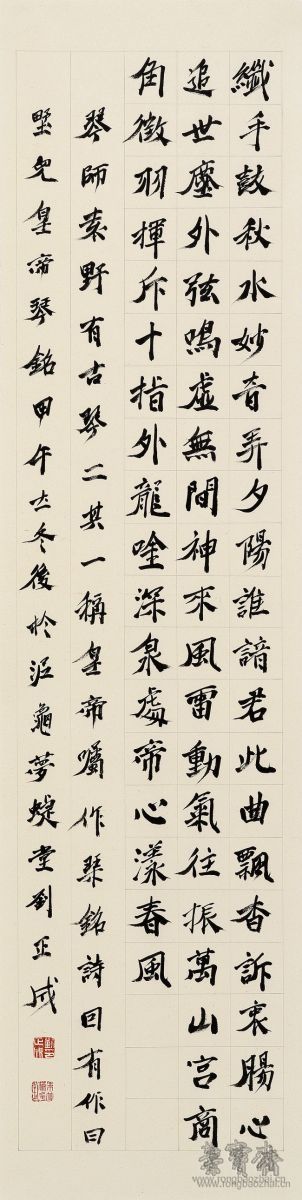 纖手鼓秋水妙音弄夕陽誰諳君此曲飄杳訴衷腸心
追世塵外弦鳴虛無間神來風雷動氣往振萬山宮商
角徵羽揮斥十指外龍唫深泉處帝心漾春風
琴師袁野有古琴二其一稱皇帝囑作琴銘詩曰有作曰
皇帝琴銘甲午立冬後於泥龜夢蜨堂劉正成
榮寶齋
www.rongbaozhai.cn